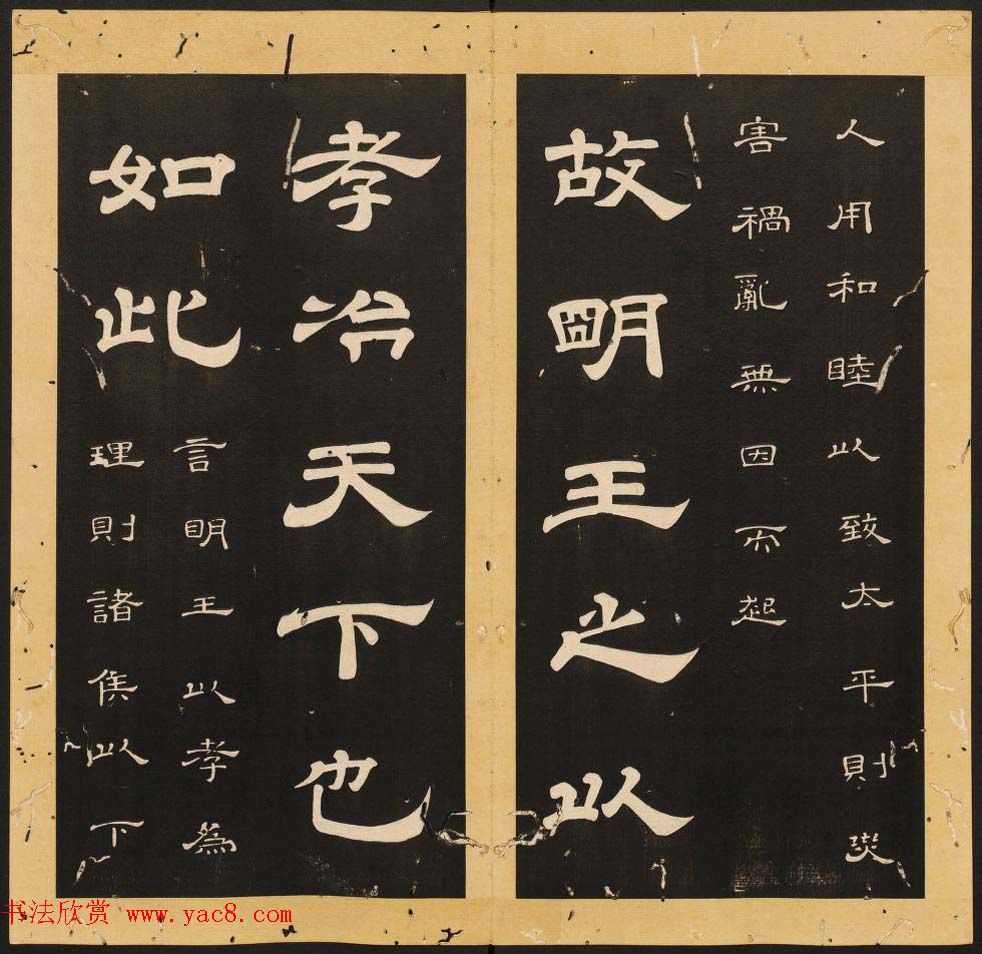 人用和睦以致太平則災
害禍亂無因而起
故明王之以
孝治天下也
如此
言明王以孝為
理則諸侯以下
书法欣赏 www.yac8.com